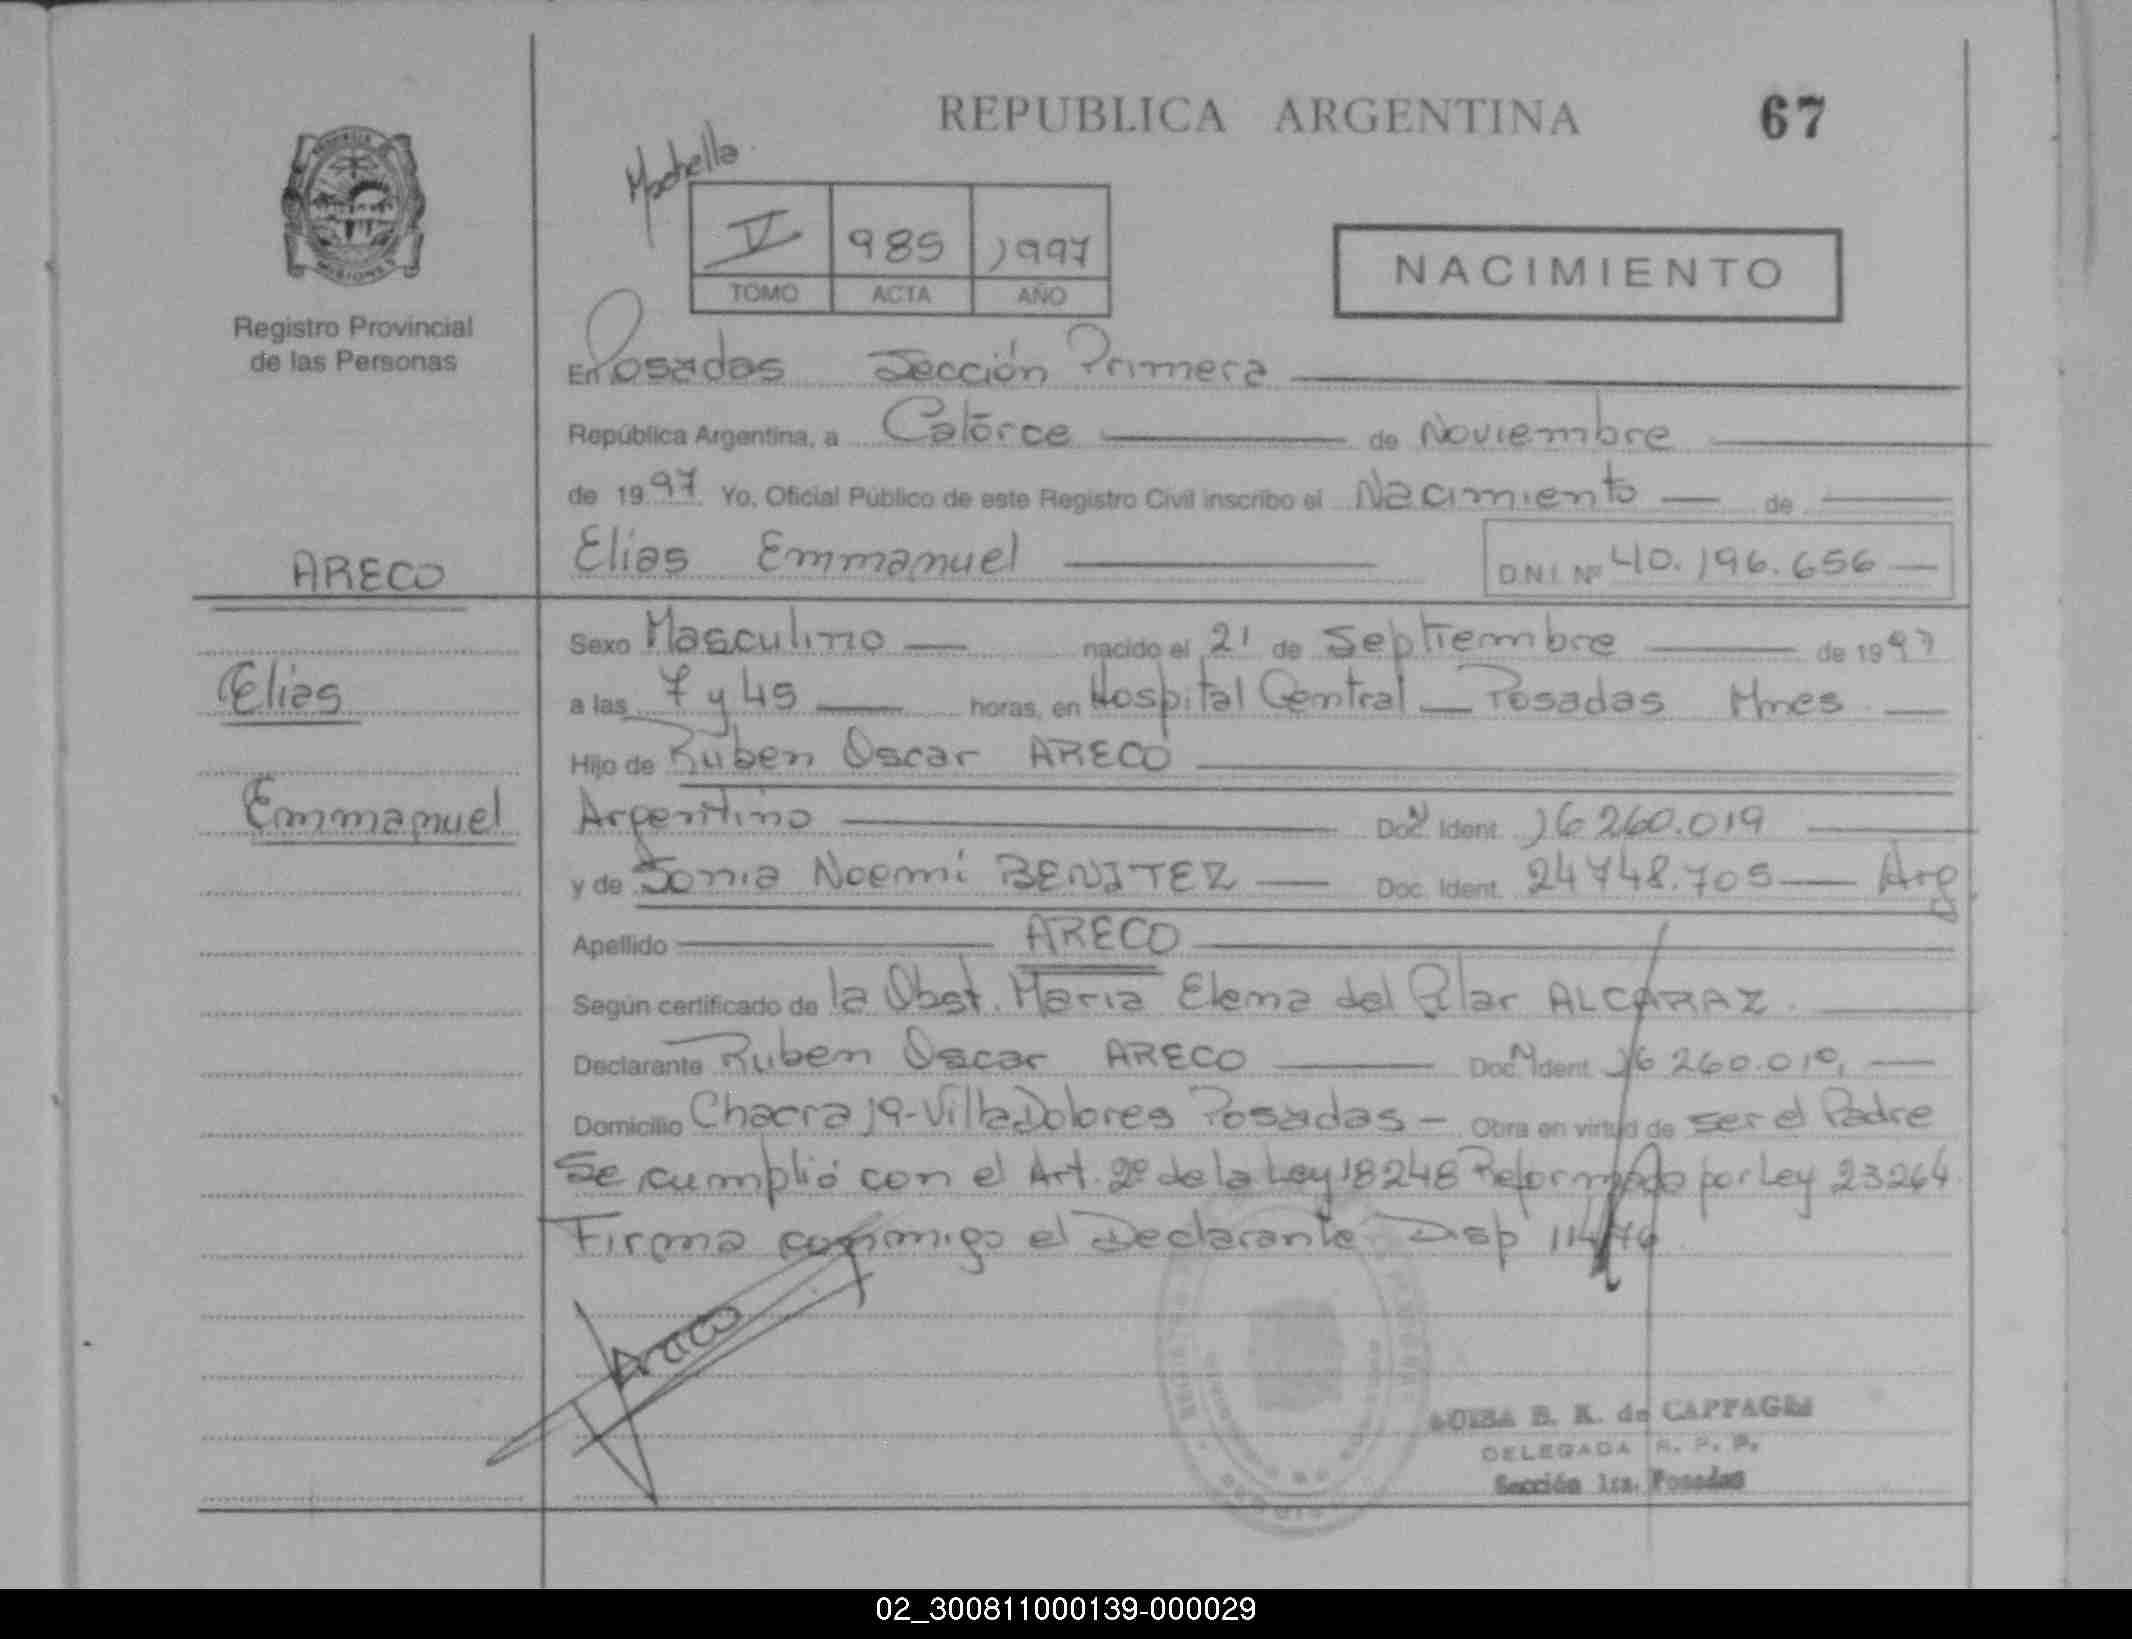 REPUBLICA ARGENTINA
67
V 985 1997
TOMO ACTA AÑO
NACIMIENTO
MISIONES
Registro Provincial
de las Personas
En Posadas Sección Primera
República Argentina, a Catorce de Noviembre
de 1997 Yo, Oficial Público de este Registro Civil inscribo el Nacimiento de
ARECO
Elias Emmanuel
D N I Nº 40.196.656
Sexo Masculino nacido el 21 de Septiembre de 1997
Elias
a las 7 y 45 horas, en Hospital Central Posadas Mnes
Hijo de Ruben Oscar ARECO
Emmanuel
Argentino Doc. Ident. 16260.019
y de Sonia Noemi BENITEZ Doc. Ident. 24748.705 Arg
Apellido ARECO
Según certificado de la Obst. Maria Elena del Pilar ALCARAZ.
Declarante Ruben Oscar ARECO Doc. Ident. 16260.019
Domicilio Chacra 19-Villa Dolores Posadas - Obra en virtud de ser el Padre
Se cumplió con el Art. 2º de la Ley 18248 Reformada por Ley 23264
Firma conmigo el Declarante Disp
Areco
B. K. de
DELEGADA R. P. P.
Sección 1ra. Posadas
02_300811000139-000029